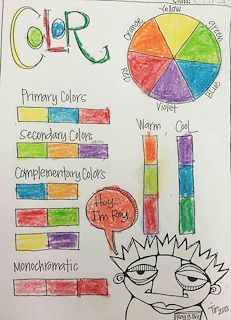 COLOR
Yellow
orange
green
red
Blue
Violet
Primary Colors
Secondary Colors
Complementary Colors
Monochromatic
Warm
Cool
Hey
I'm Ray